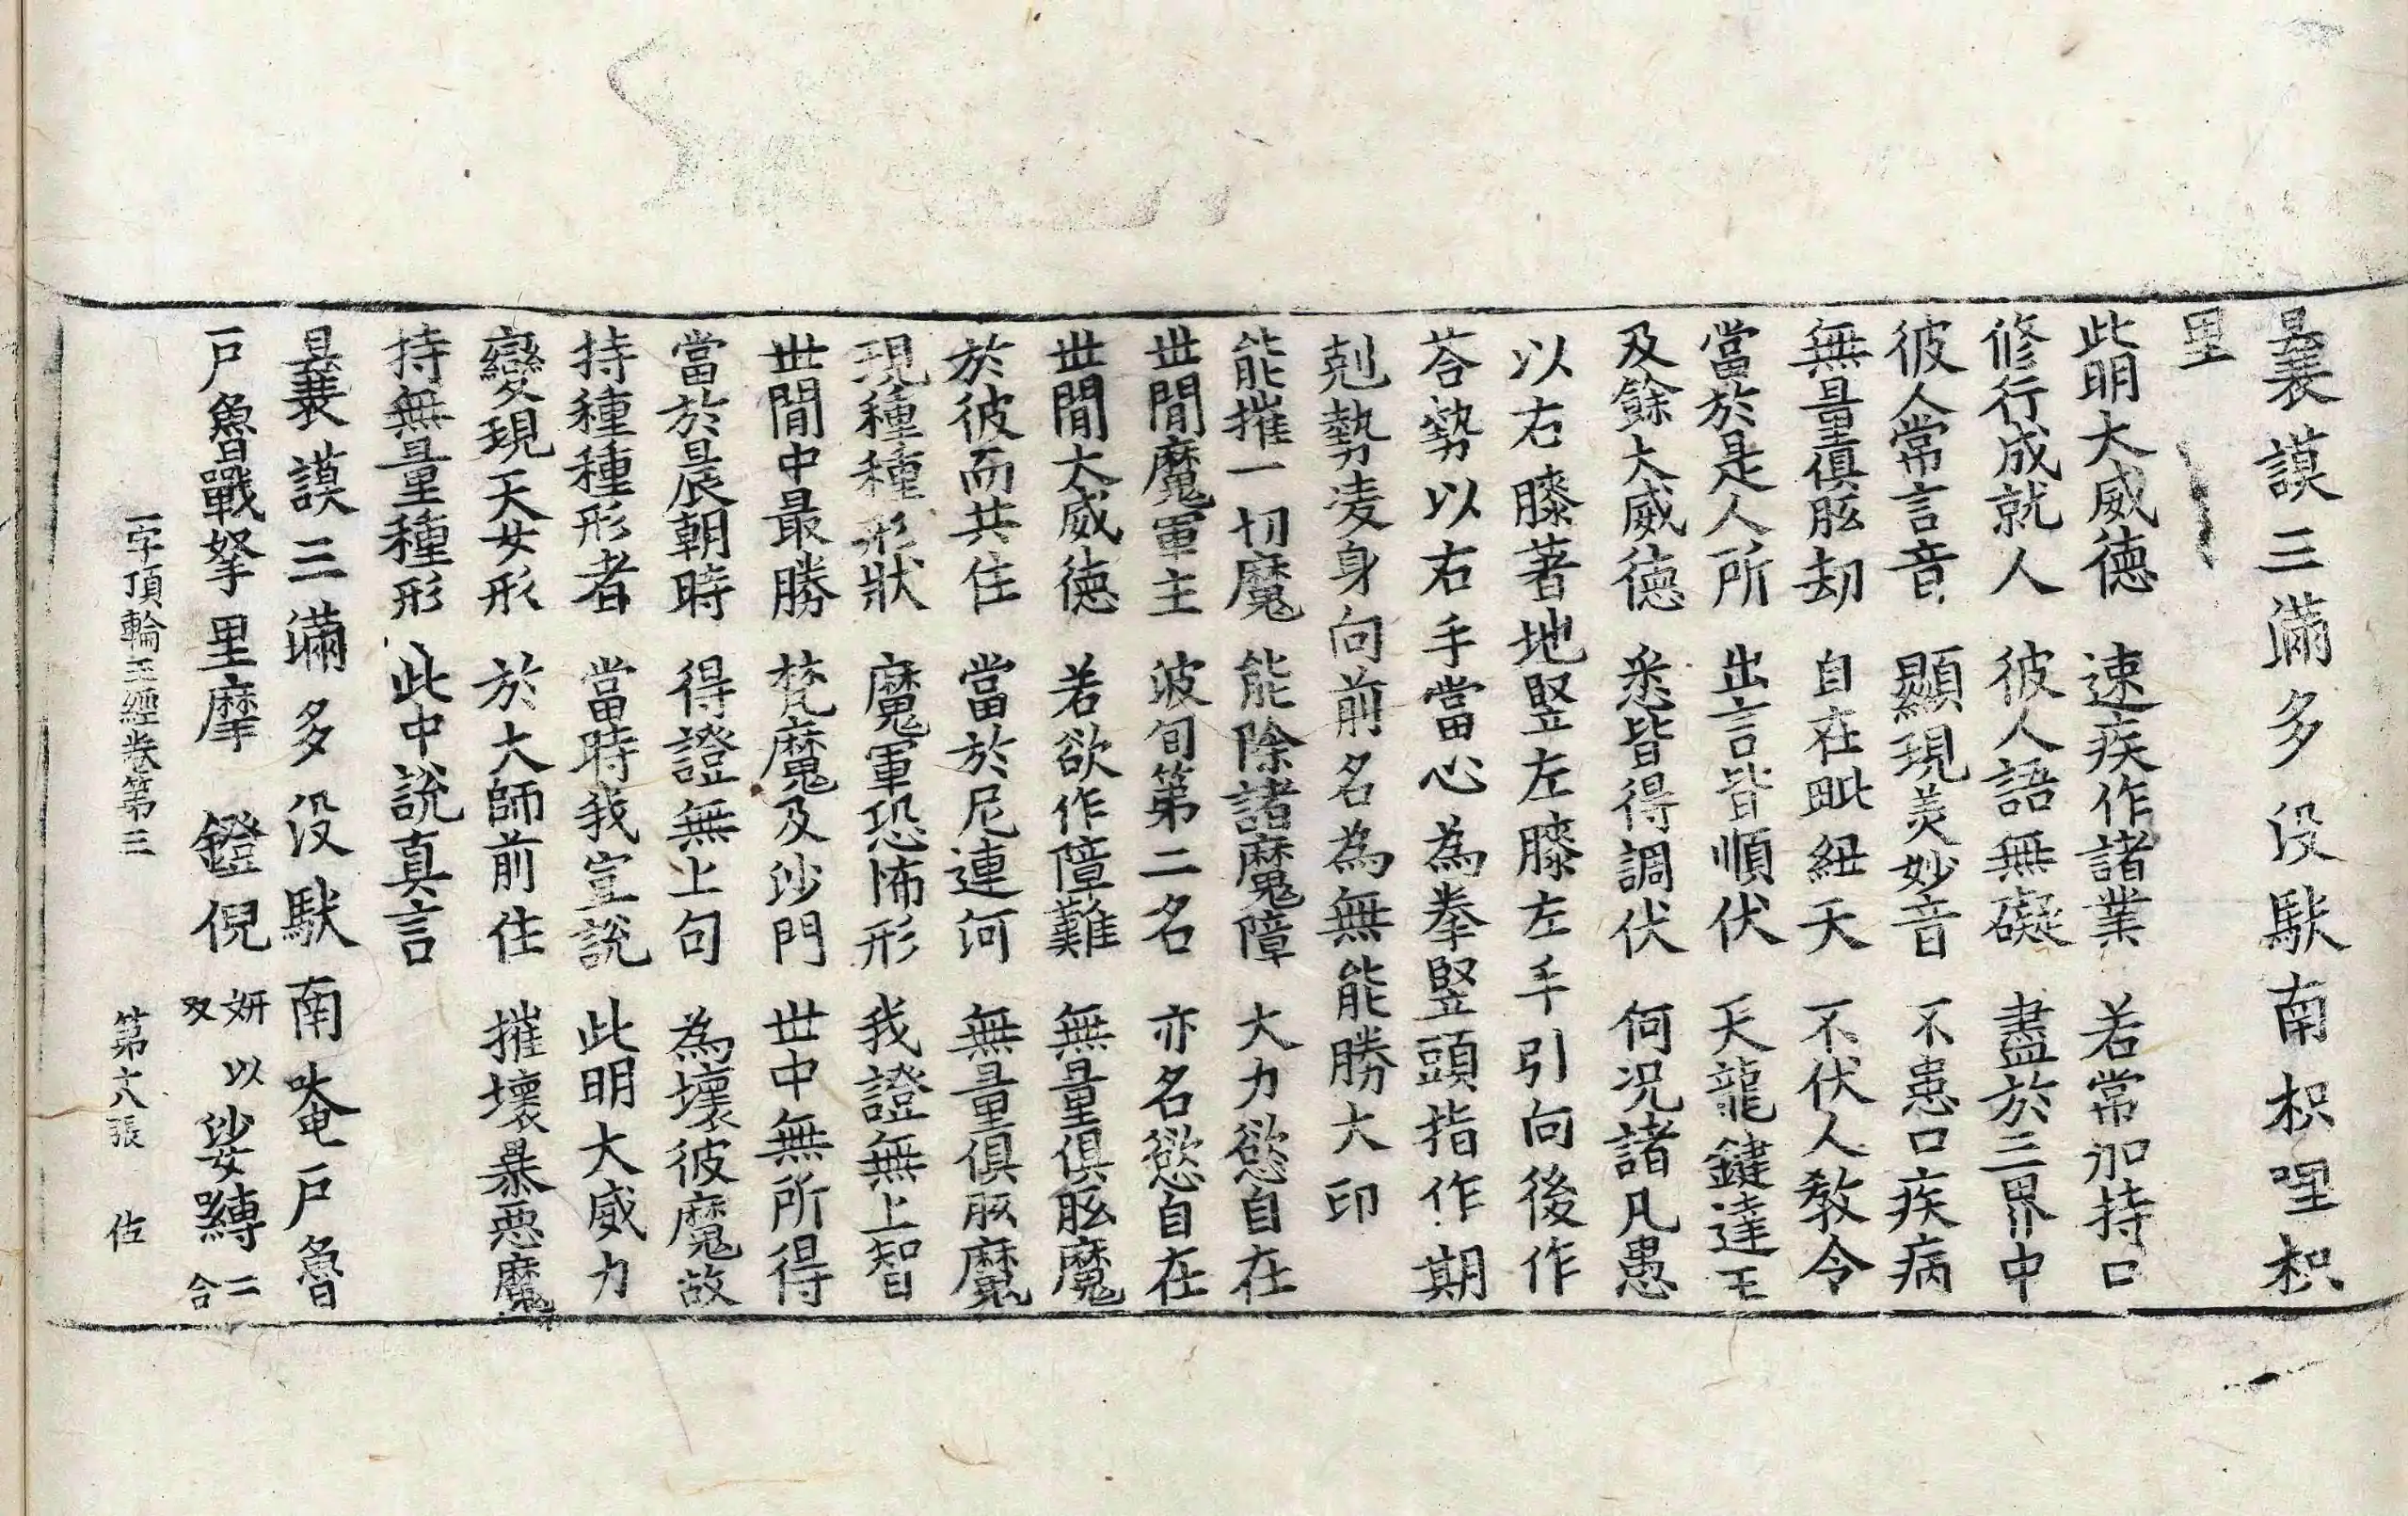 曩謨三滿多没馱南枳哩枳
里
此明大威德　速疾作諸業　若常加持口
修行成就人　彼人語無礙　盡於三界中
彼人常言音　顯現美妙音　不患口疾病
無量俱胝劫　自在毗紐天　不伏人教令
當於是人所　出言皆順伏　天龍鍵達王
及餘大威德　悉皆得調伏　何況諸凡愚
以右膝著地竪左膝左手引向後作
荅勢以右手當心為拳竪頭指作期
剋勢㚆身向前名為無能勝大印
能摧一切魔　能除諸魔障　大力慾自在
世間魔軍主　波旬第二名　亦名慾自在
世間大威德　若欲作障難　無量俱胝魔
於彼而共住　當於尼連河　無量俱胝魔
現種種形狀　魔軍恐怖形　我證無上智
世間中最勝　梵魔及沙門　世中無所得
當於晨朝時　得證無上句　為壞彼魔故
持種種形者　當時我宣說　此明大威力
變現天女形　於大師前住　摧壞暴惡魔
持無量種形　此中說真言
曩謨三滿多没馱南唵戶魯
戶魯戰拏里摩　鐙倪　妍以反　娑嚩二合
一字頂輪王經卷第三　第六張　佐